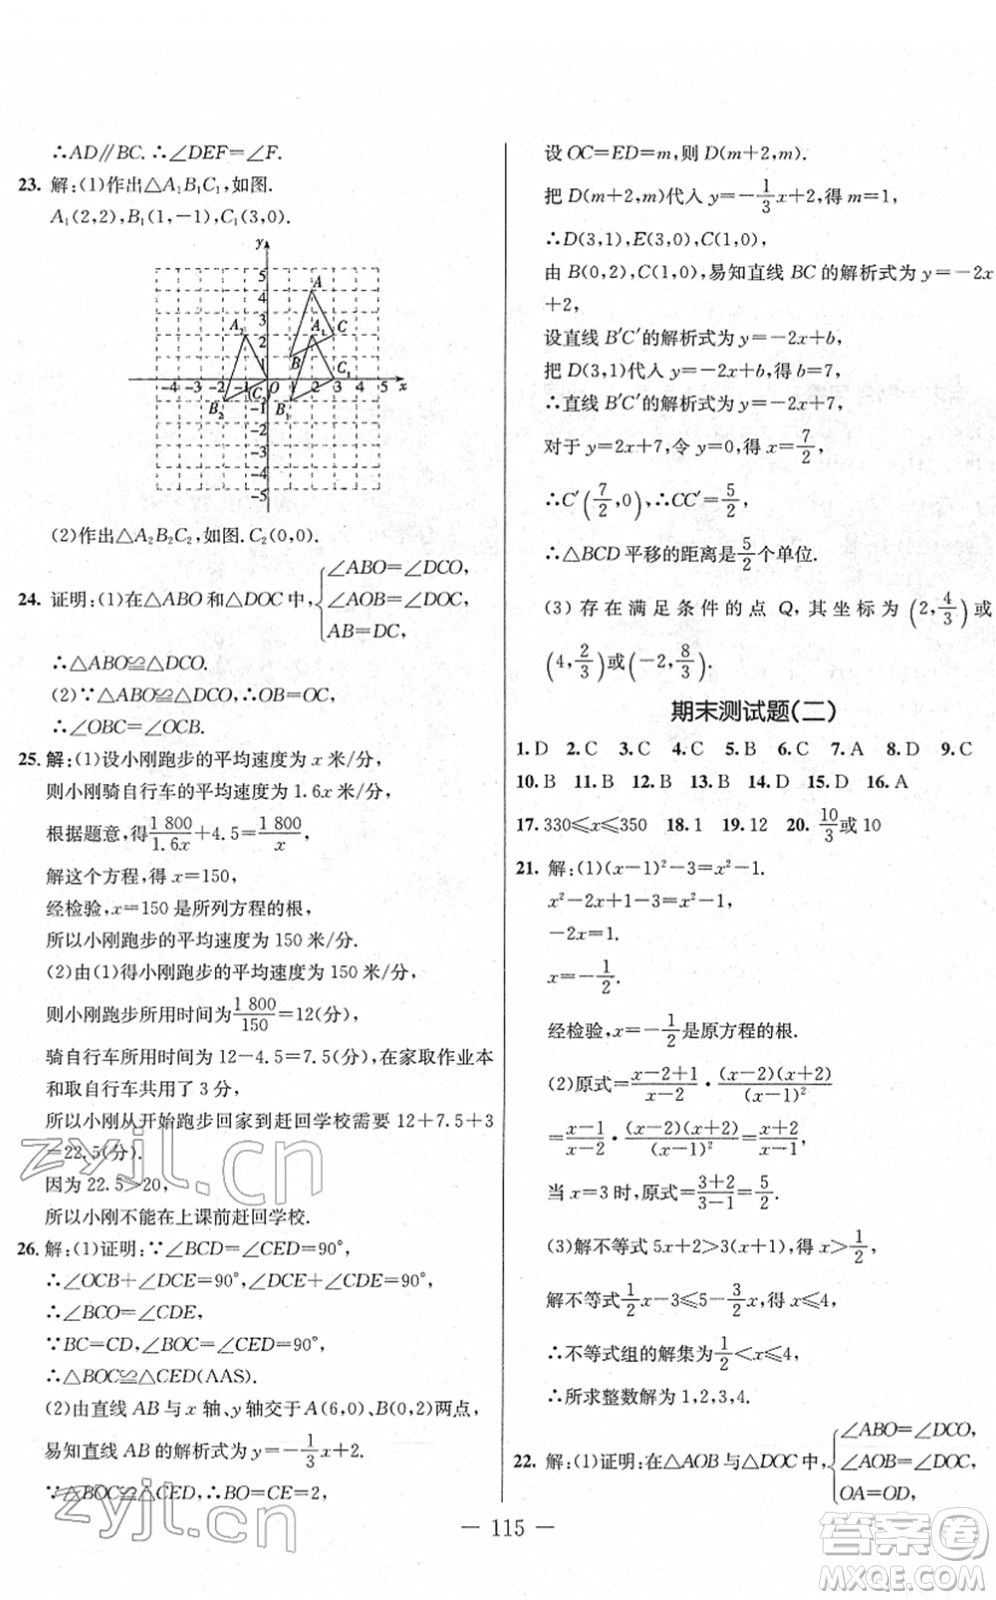 ∴AD∥BC. ∴∠DEF=∠F.
23. 解:(1)作出△A₁B₁C₁,如图.
A₁(2,2),B₁(1,-1),C₁(3,0).
y
5
4 A
3
A₂ 2 A₁ C
1 B
C₁
-4 -3 -2 -1 O 1 2 3 4 5 x
B₂ (C₂) -1 B₁
-2
-3
-4
-5
(2)作出△A₂B₂C₂,如图. C₂(0,0).
24. 证明:(1)在△ABO和△DOC中, { ∠ABO=∠DCO,
∠AOB=∠DOC,
AB=DC,
∴△ABO≌△DCO.
(2)∵△ABO≌△DCO,∴OB=OC,
∴∠OBC=∠OCB.
25. 解:(1)设小刚跑步的平均速度为 x 米/分,
则小刚骑自行车的平均速度为 1.6x 米/分,
根据题意,得 1 800/1.6x +4.5= 1 800/x ,
解这个方程,得 x=150,
经检验,x=150 是所列方程的根,
所以小刚跑步的平均速度为 150 米/分.
(2)由(1)得小刚跑步的平均速度为 150 米/分,
则小刚跑步所用时间为 1 800/150 =12(分),
骑自行车所用时间为 12-4.5=7.5(分),在家取作业本
和取自行车共用了 3 分,
所以小刚从开始跑步回家到赶回学校需要 12+7.5+3
=22.5(分).
因为 22.5>20,
所以小刚不能在上课前赶回学校.
26. 解:(1)证明:∵∠BCD=∠CED=90°,
∴∠OCB+∠DCE=90°,∠DCE+∠CDE=90°,
∴∠BCO=∠CDE,
∵BC=CD,∠BOC=∠CED=90°,
∴△BOC≌△CED(AAS).
(2)由直线 AB 与 x 轴、y 轴交于 A(6,0)、B(0,2)两点,
易知直线 AB 的解析式为 y=-1/3 x+2.
∵△BOC≌△CED,∴BO=CE=2,
设 OC=ED=m,则 D(m+2,m).
把 D(m+2,m)代入 y=-1/3 x+2,得 m=1,
∴D(3,1),E(3,0),C(1,0),
由 B(0,2),C(1,0),易知直线 BC 的解析式为 y=-2x
+2,
设直线 B′C′的解析式为 y=-2x+b,
把 D(3,1)代入 y=-2x+b,得 b=7,
∴直线 B′C′的解析式为 y=-2x+7,
对于 y=2x+7,令 y=0,得 x=7/2,
∴C′(7/2,0),∴CC′=5/2,
∴△BCD 平移的距离是 5/2 个单位.
(3)存在满足条件的点 Q,其坐标为 (2,4/3) 或
(4,2/3) 或 (-2,8/3).
期末测试题(二)
1. D 2. C 3. C 4. C 5. B 6. C 7. A 8. D 9. C
10. B 11. B 12. B 13. B 14. D 15. D 16. A
17. 330≤x≤350 18. 1 19. 12 20. 10/3 或 10
21. 解:(1)(x-1)²-3=x²-1.
x²-2x+1-3=x²-1.
-2x=1.
x=-1/2.
经检验,x=-1/2 是原方程的根.
(2)原式= (x-2+1)/(x-2) · (x-2)(x+2)/(x-1)²
= (x-1)/(x-2) · (x-2)(x+2)/(x-1)² = (x+2)/(x-1),
当 x=3 时,原式= (3+2)/(3-1) = 5/2.
(3)解不等式 5x+2>3(x+1),得 x>1/2,
解不等式 1/2 x-3≤5-3/2 x,得 x≤4,
∴不等式组的解集为 1/2<x≤4,
∴所求整数解为 1,2,3,4.
22. 解:(1)证明:在△AOB 与△DOC 中, { ∠ABO=∠DCO,
∠AOB=∠DOC,
OA=OD,
— 115 —
zyjl.cn
zyjl.cn
答案圈
MXQE.COM